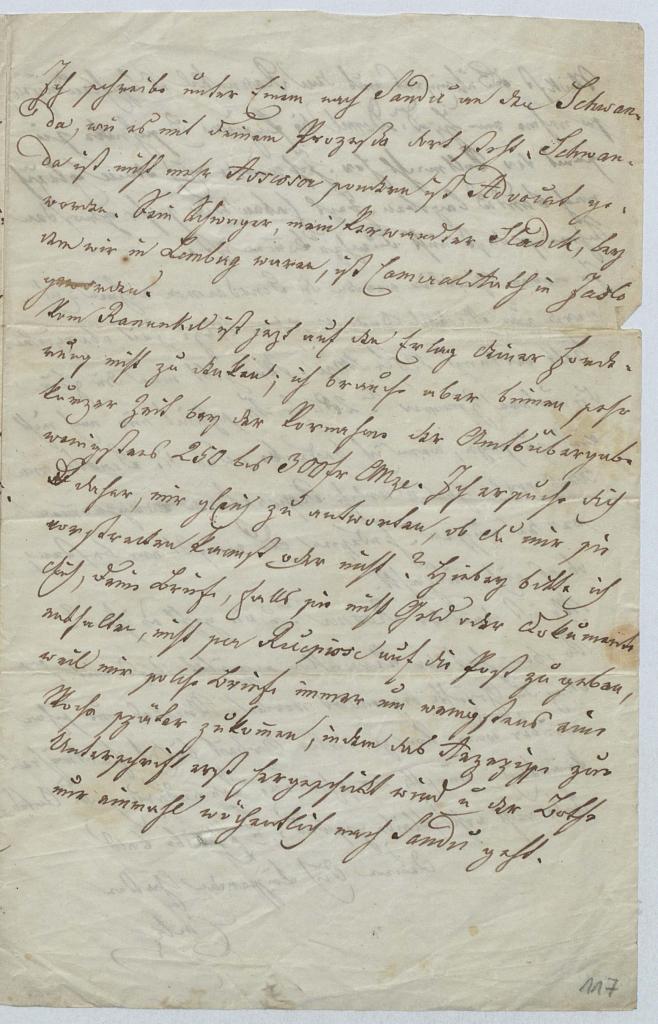 Ich schreibe unter Einem nach Sandec an den Schwan-
da, wie es mit deinem Prozesse dort steht. Schwan-
da ist nicht mehr Assessor sondern ist Advocat ge-
worden. Sein Schwager, mein Verwandter Sladek, bey
dem wir in Lemberg waren, ist Cameralrath in Jaslo
geworden.
Vom ist jezt auf den Erlag deiner Forde-
rung nicht zu denken; ich brauche aber binnen sehr
kurzer Zeit bey der Vornahme der Amtsübergabe
wenigstens 250 bis 300 fr CMze. Ich ersuche dich
daher, mir gleich zu antworten, ob du mir sie
vorstrecken kannst oder nicht? Hiebey bitte ich
dich, deine Briefe, falls sie nicht Geld oder Dokumente
enthalten, nicht per Recepisse auf die Post zu geben,
weil mir solche Briefe immer um wenigstens eine
Woche später zukommen, indem das Rezepisse zur
Unterschrift erst hergeschickt wird u der Bothe
nur einmahl wöchentlich nach Sandec geht.
117